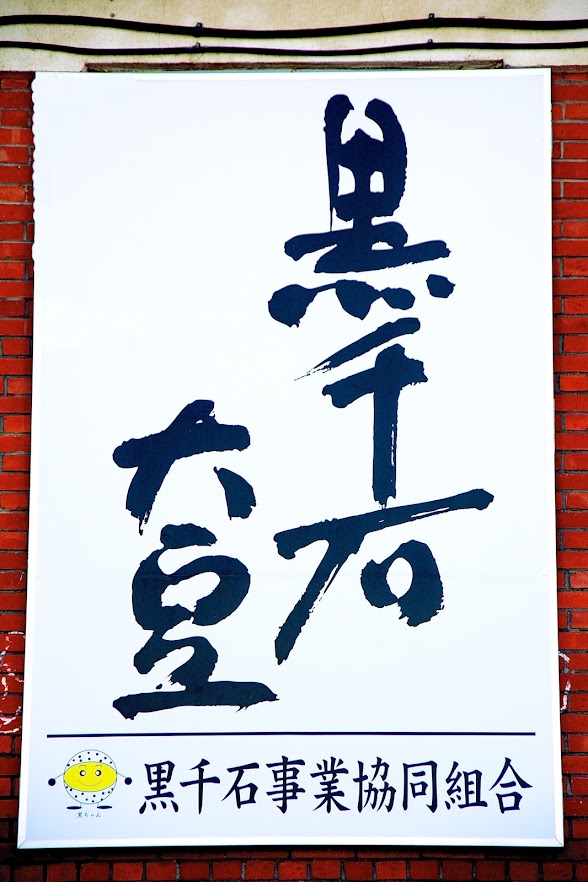 黒千石
大豆
黒千石事業協同組合
黒ちゃん